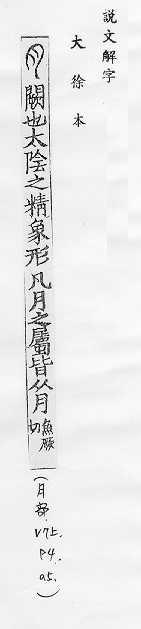 説文解字
大徐本
月 闕也太陰之精象形凡月之屬皆从月 魚厥切
(月部.
V7上.
P4.
a5.)